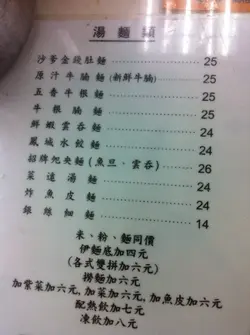 湯麵類
沙爹金錢肚麵 25
原汁牛腩麵(新鮮牛腩) 25
五香牛根麵 25
牛根腩麵 25
鮮蝦雲吞麵 24
鳳城水餃麵 24
招牌炮夾麵(魚旦、雲吞) 26
菜遠湯麵 24
炸魚皮麵 24
銀絲細麵 14
米、粉、麵同價
伊麵底加四元
(各式雙拼加六元)
撈麵加六元
加紫菜加六元,加菜加六元,加魚皮加六元
配熱飲加七元
凍飲加八元